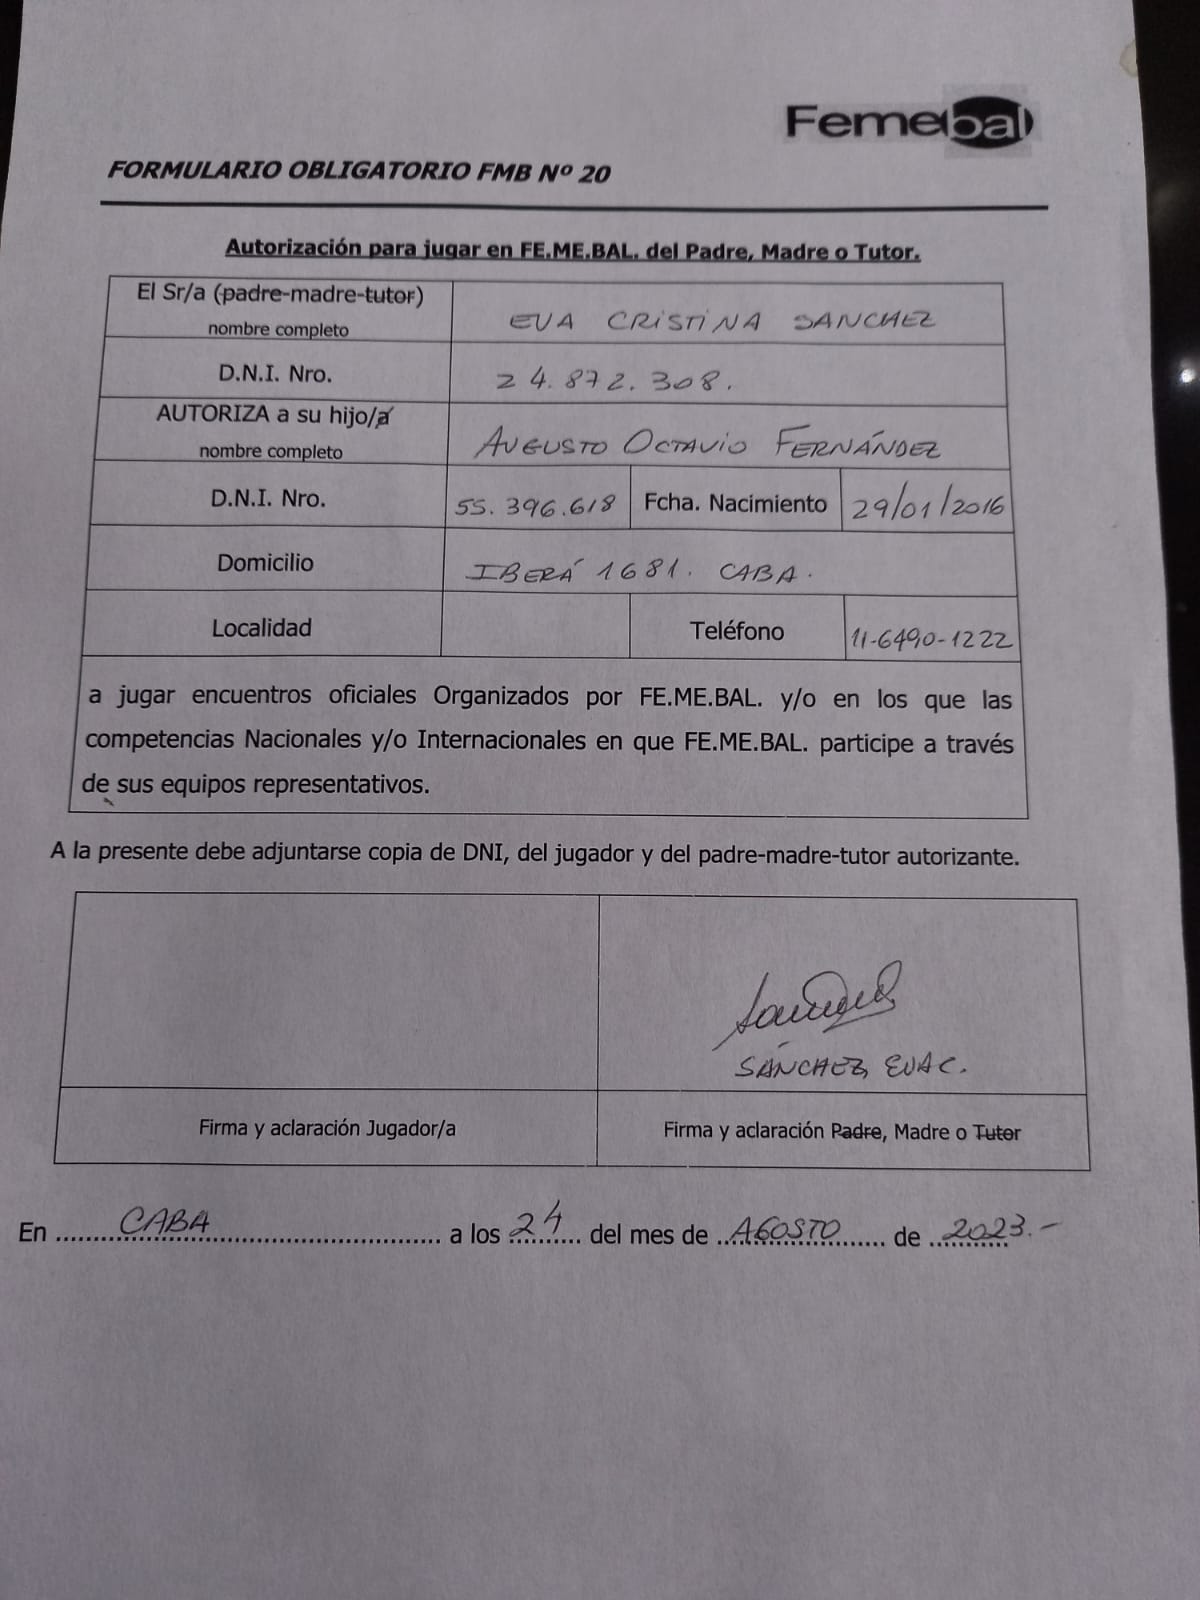 Femebal
FORMULARIO OBLIGATORIO FMB Nº 20
Autorización para jugar en FE.ME.BAL. del Padre, Madre o Tutor.
El Sr/a (padre-madre-tutor)
nombre completo
EVA CRISTINA SANCHEZ
D.N.I. Nro.
24.872.308.
AUTORIZA a su hijo/a
nombre completo
AUGUSTO OCTAVIO FERNÁNDEZ
D.N.I. Nro.
55.396.618
Fcha. Nacimiento
29/01/2016
Domicilio
IBERÁ 1681. CABA.
Localidad
Teléfono
11-6490-1222
a jugar encuentros oficiales Organizados por FE.ME.BAL. y/o en los que las
competencias Nacionales y/o Internacionales en que FE.ME.BAL. participe a través
de sus equipos representativos.
A la presente debe adjuntarse copia de DNI, del jugador y del padre-madre-tutor autorizante.
SÁNCHEZ, EVA C.
Firma y aclaración Jugador/a
Firma y aclaración Padre, Madre o Tutor
En CABA a los 24 del mes de AGOSTO de 2023.-